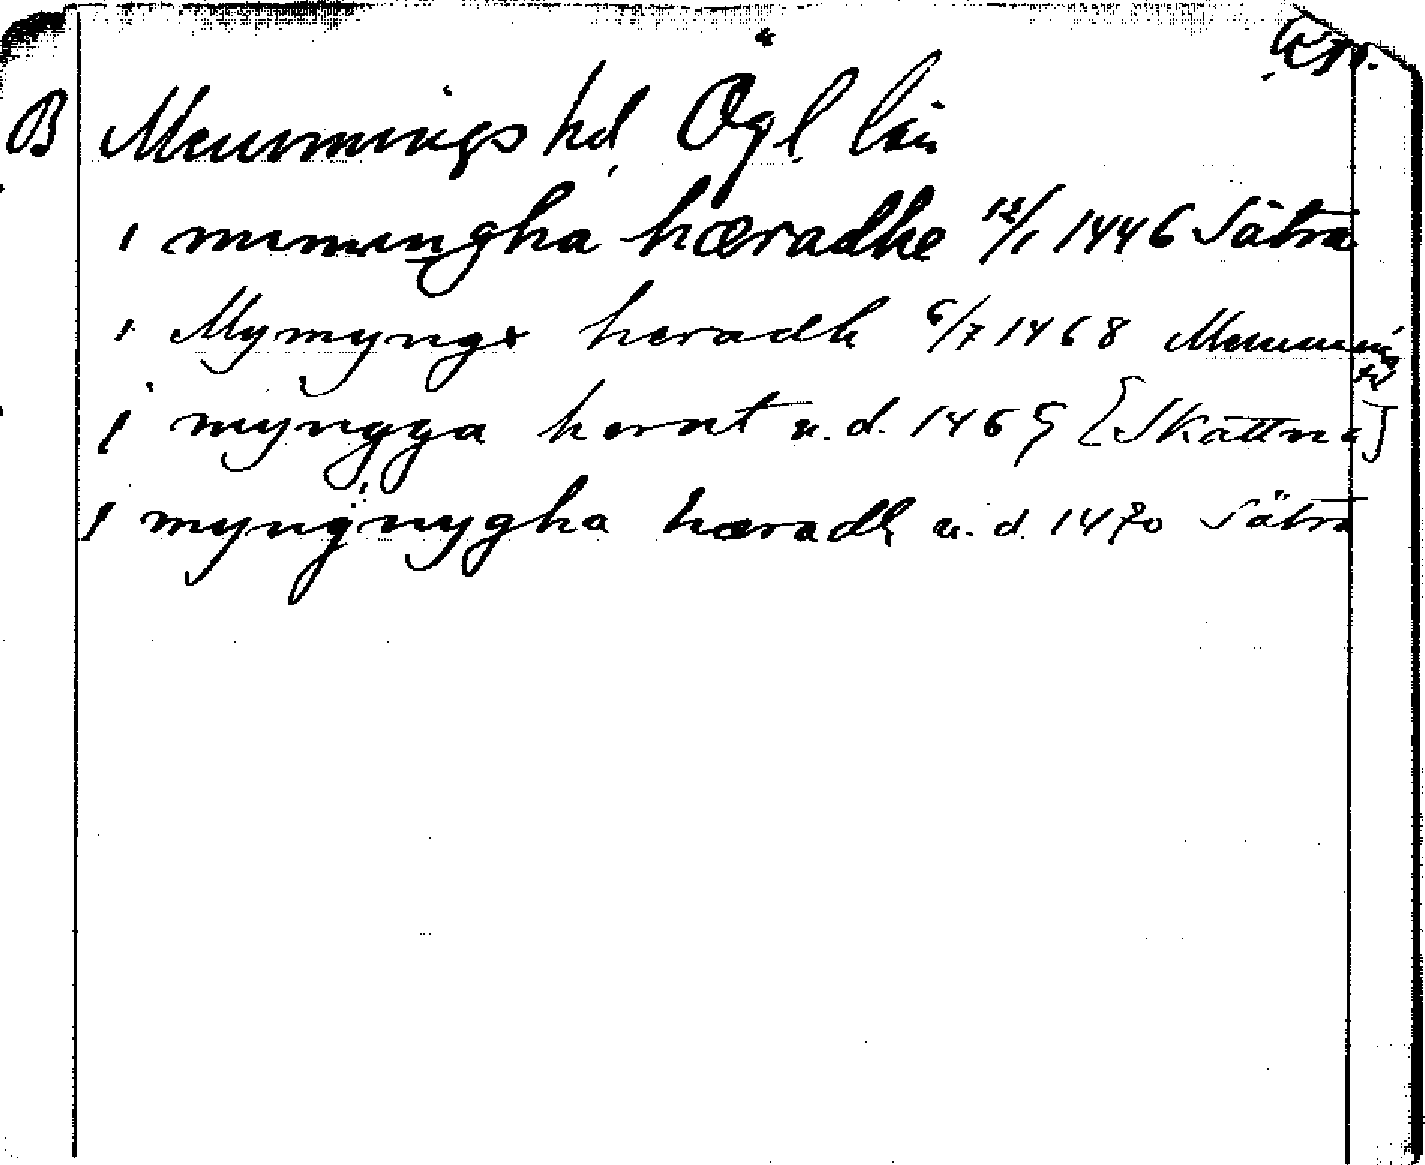 B Memmings hd Ögl län
i mimingha hæradhe 12/1 1446 Sätra
i Mymyngx heradh 6/7 1468 Memming
j myngga herat u.d. 1469 [Skattna]
j myngnygha hæradh u.d. 1470 Sätra